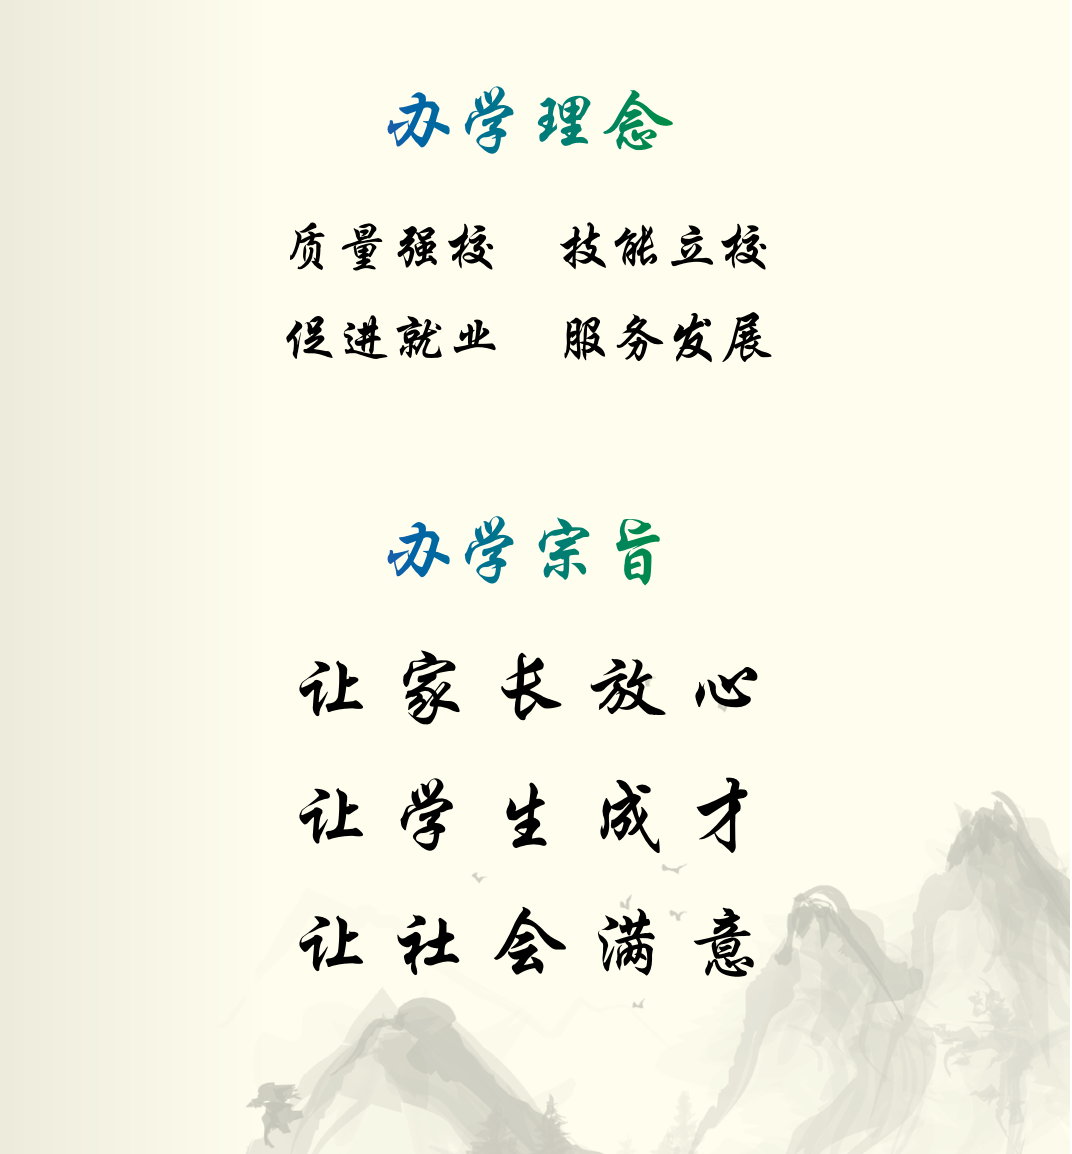 办学理念
质量强校 技能立校
促进就业 服务发展
办学宗旨
让家长放心
让学生成才
让社会满意